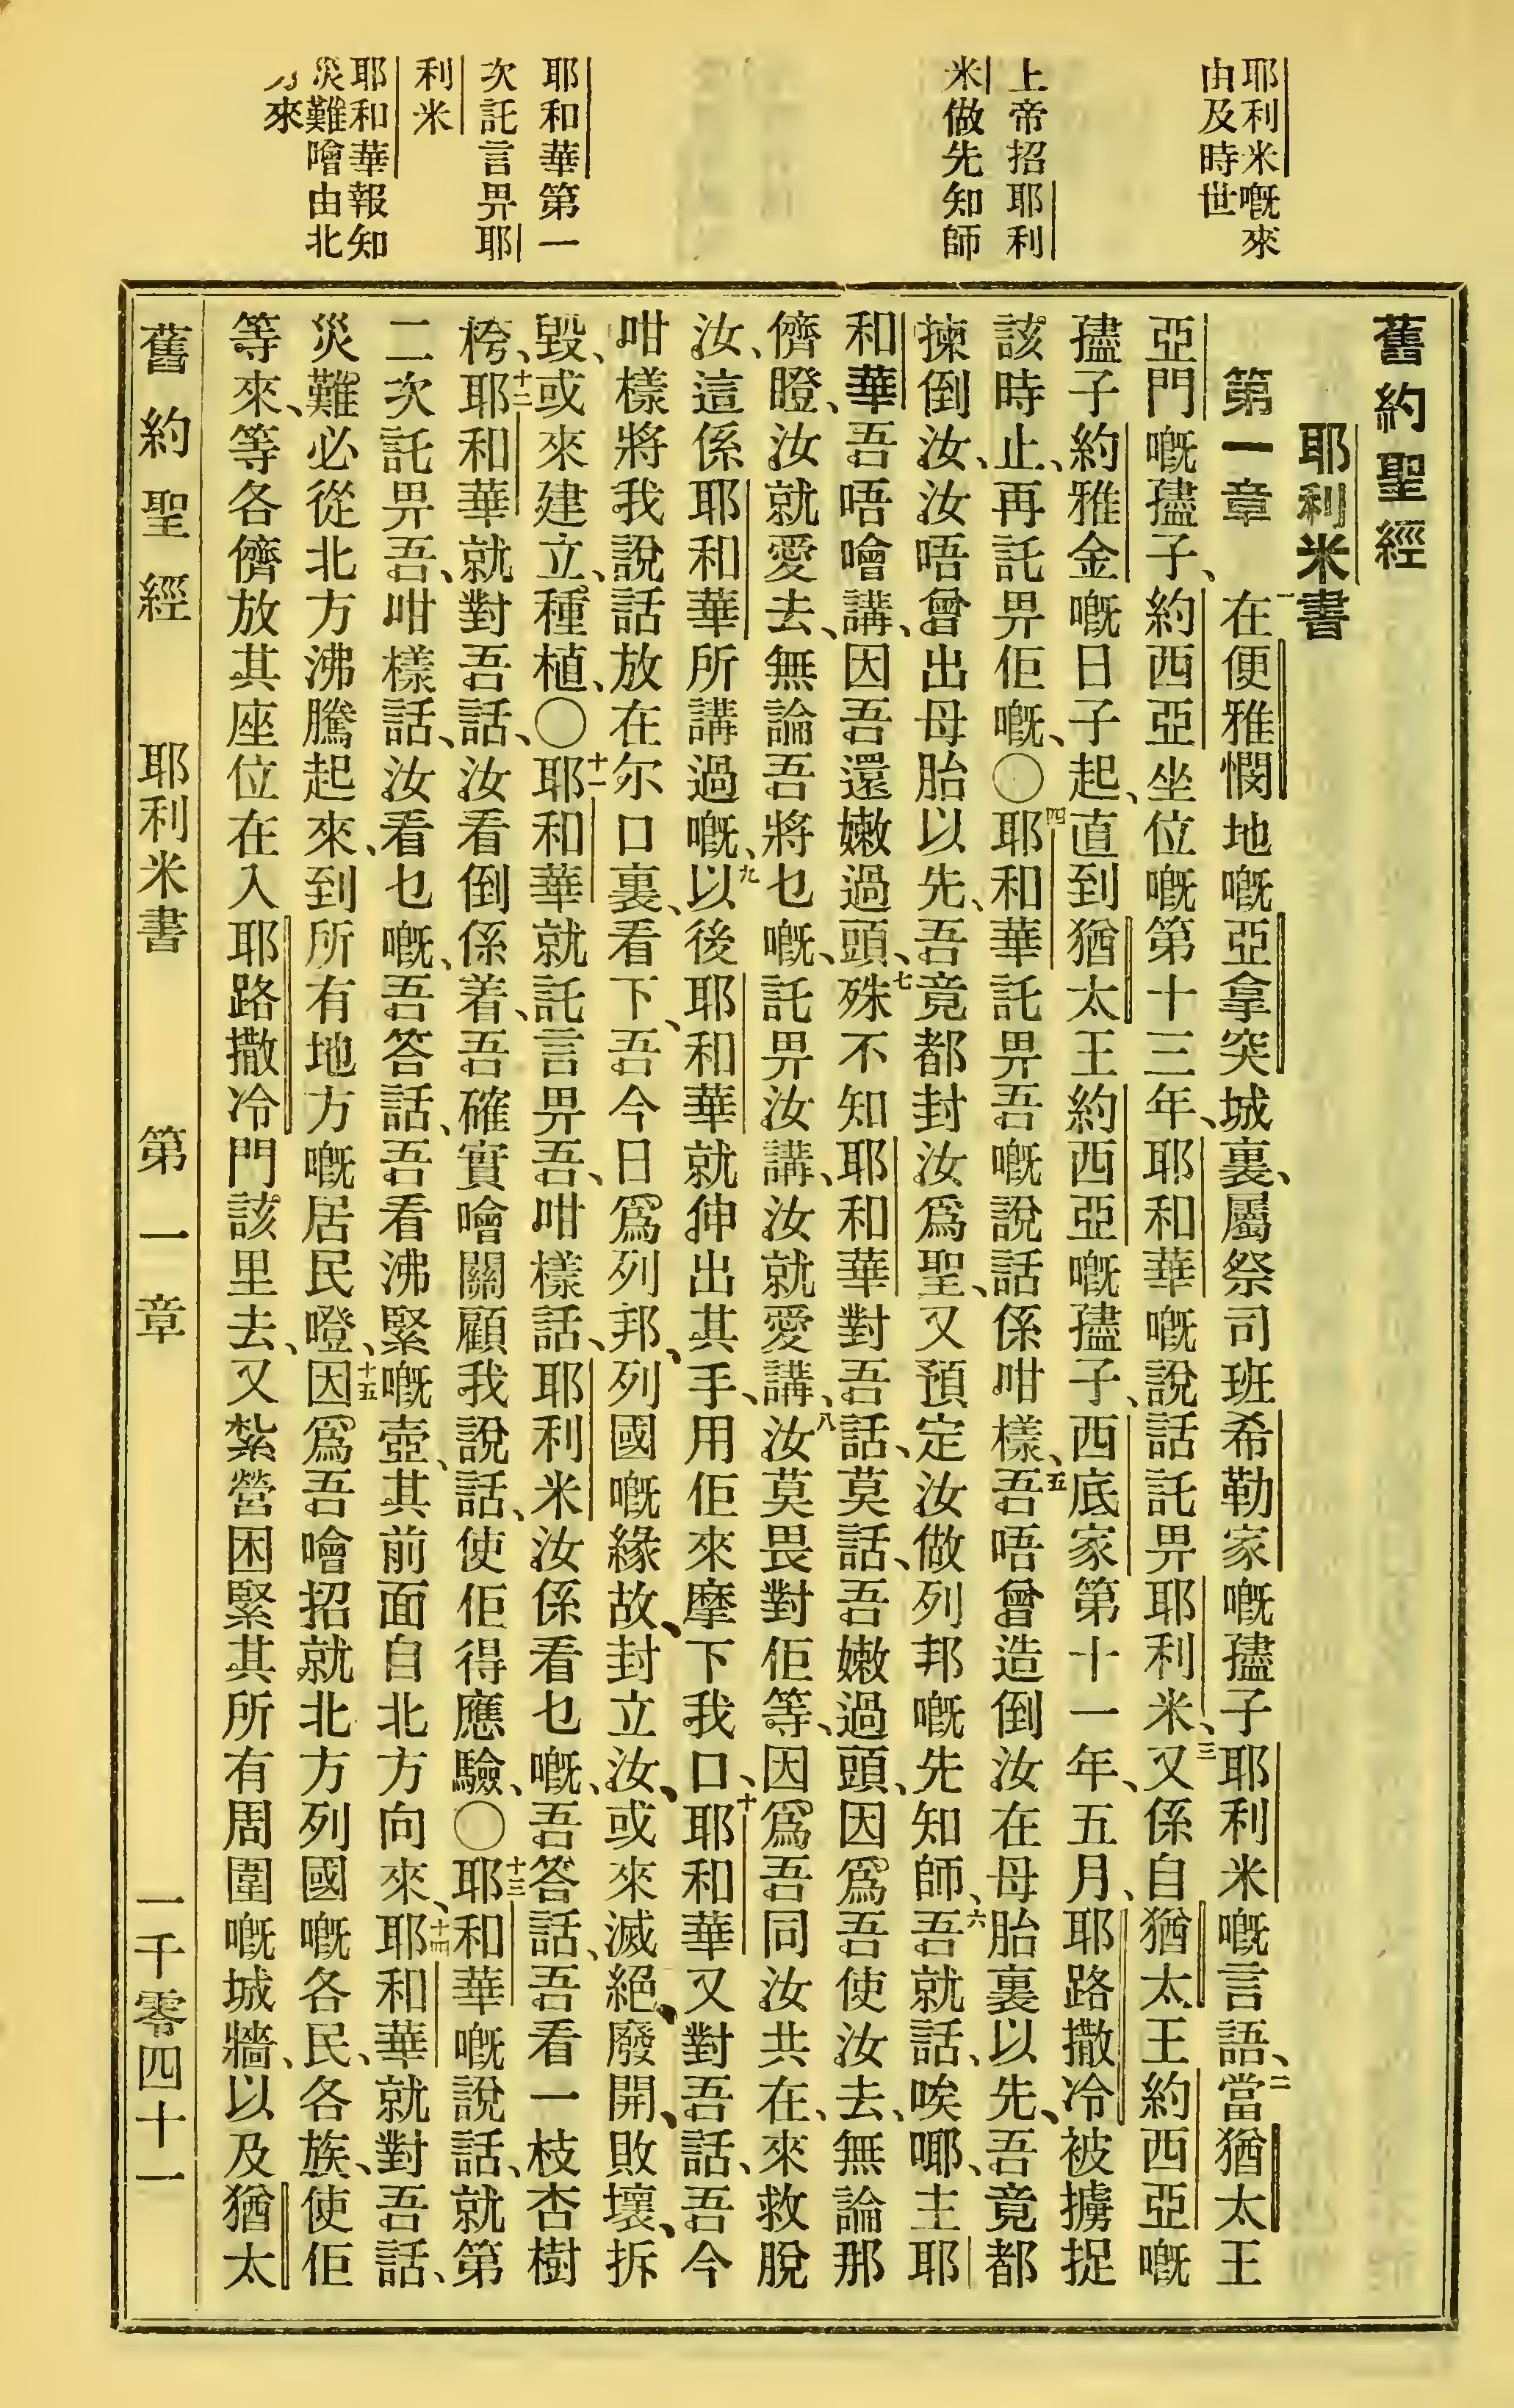 耶利米嘅來
由及時世
上帝招耶利
米做先知師
耶和華第一
次託言畀耶
利米
耶和華報知
災難噲由北
方來
舊約聖經
耶利米書
第一章 一在便雅憫地嘅亞拿突城裏、屬祭司班希勒家嘅孻子耶利米嘅言語、二當猶太王
亞門嘅孻子、約西亞坐位嘅第十三年、耶和華嘅說話託畀耶利米、三又係自猶太王約西亞嘅
孻子約雅金嘅日子起、直到猶太王約西亞嘅孻子、西底家第十一年、五月、耶路撒冷被擄捉
該時止、再託畀佢嘅、〇四耶和華託畀吾嘅說話係咁樣、五吾唔曾造倒汝在母胎裏以先、吾竟都
揀倒汝、汝唔曾出母胎以先、吾竟都封汝爲聖、又預定汝做列邦嘅先知師、六吾就話、唉㖿、主耶
和華吾唔噲講、因吾還嫩過頭、七殊不知耶和華對吾話、莫話、吾嫩過頭、因爲吾使汝去、無論那
儕瞪、汝就愛去、無論吾將乜嘅、託畀汝講、汝就愛講、八汝莫畏對佢等、因爲吾同汝共在、來救脫
汝、這係耶和華所講過嘅、九以後耶和華就伸出其手、用佢來摩下我口、十耶和華又對吾話、吾今
咁樣將我說話放在尔口裏、看下、吾今日爲列邦、列國嘅緣故、封立汝、或來滅絕、廢開、敗壞、拆
毀、或來建立、種植、〇十一耶和華就託言畀吾、咁樣話、耶利米汝係看乜嘅、吾答話、吾看一枝杏樹
桍、十二耶和華就對吾話、汝看倒係着、吾確實噲關顧我說話、使佢得應驗、〇十三耶和華嘅說話、就第
二次託畀吾、咁樣話、汝看乜嘅、吾答話、吾看沸緊嘅壺、其前面自北方向來、十四耶和華就對吾話、
災難必從北方沸騰起來、到所有地方嘅居民噔、十五因爲吾噲招就北方列國嘅各民、各族、使佢
等來、等各儕放其座位在入耶路撒冷門該里去、又紮營困緊其所有周圍嘅城牆、以及猶太
舊約聖經 耶利米書 第一章 一千零四十一